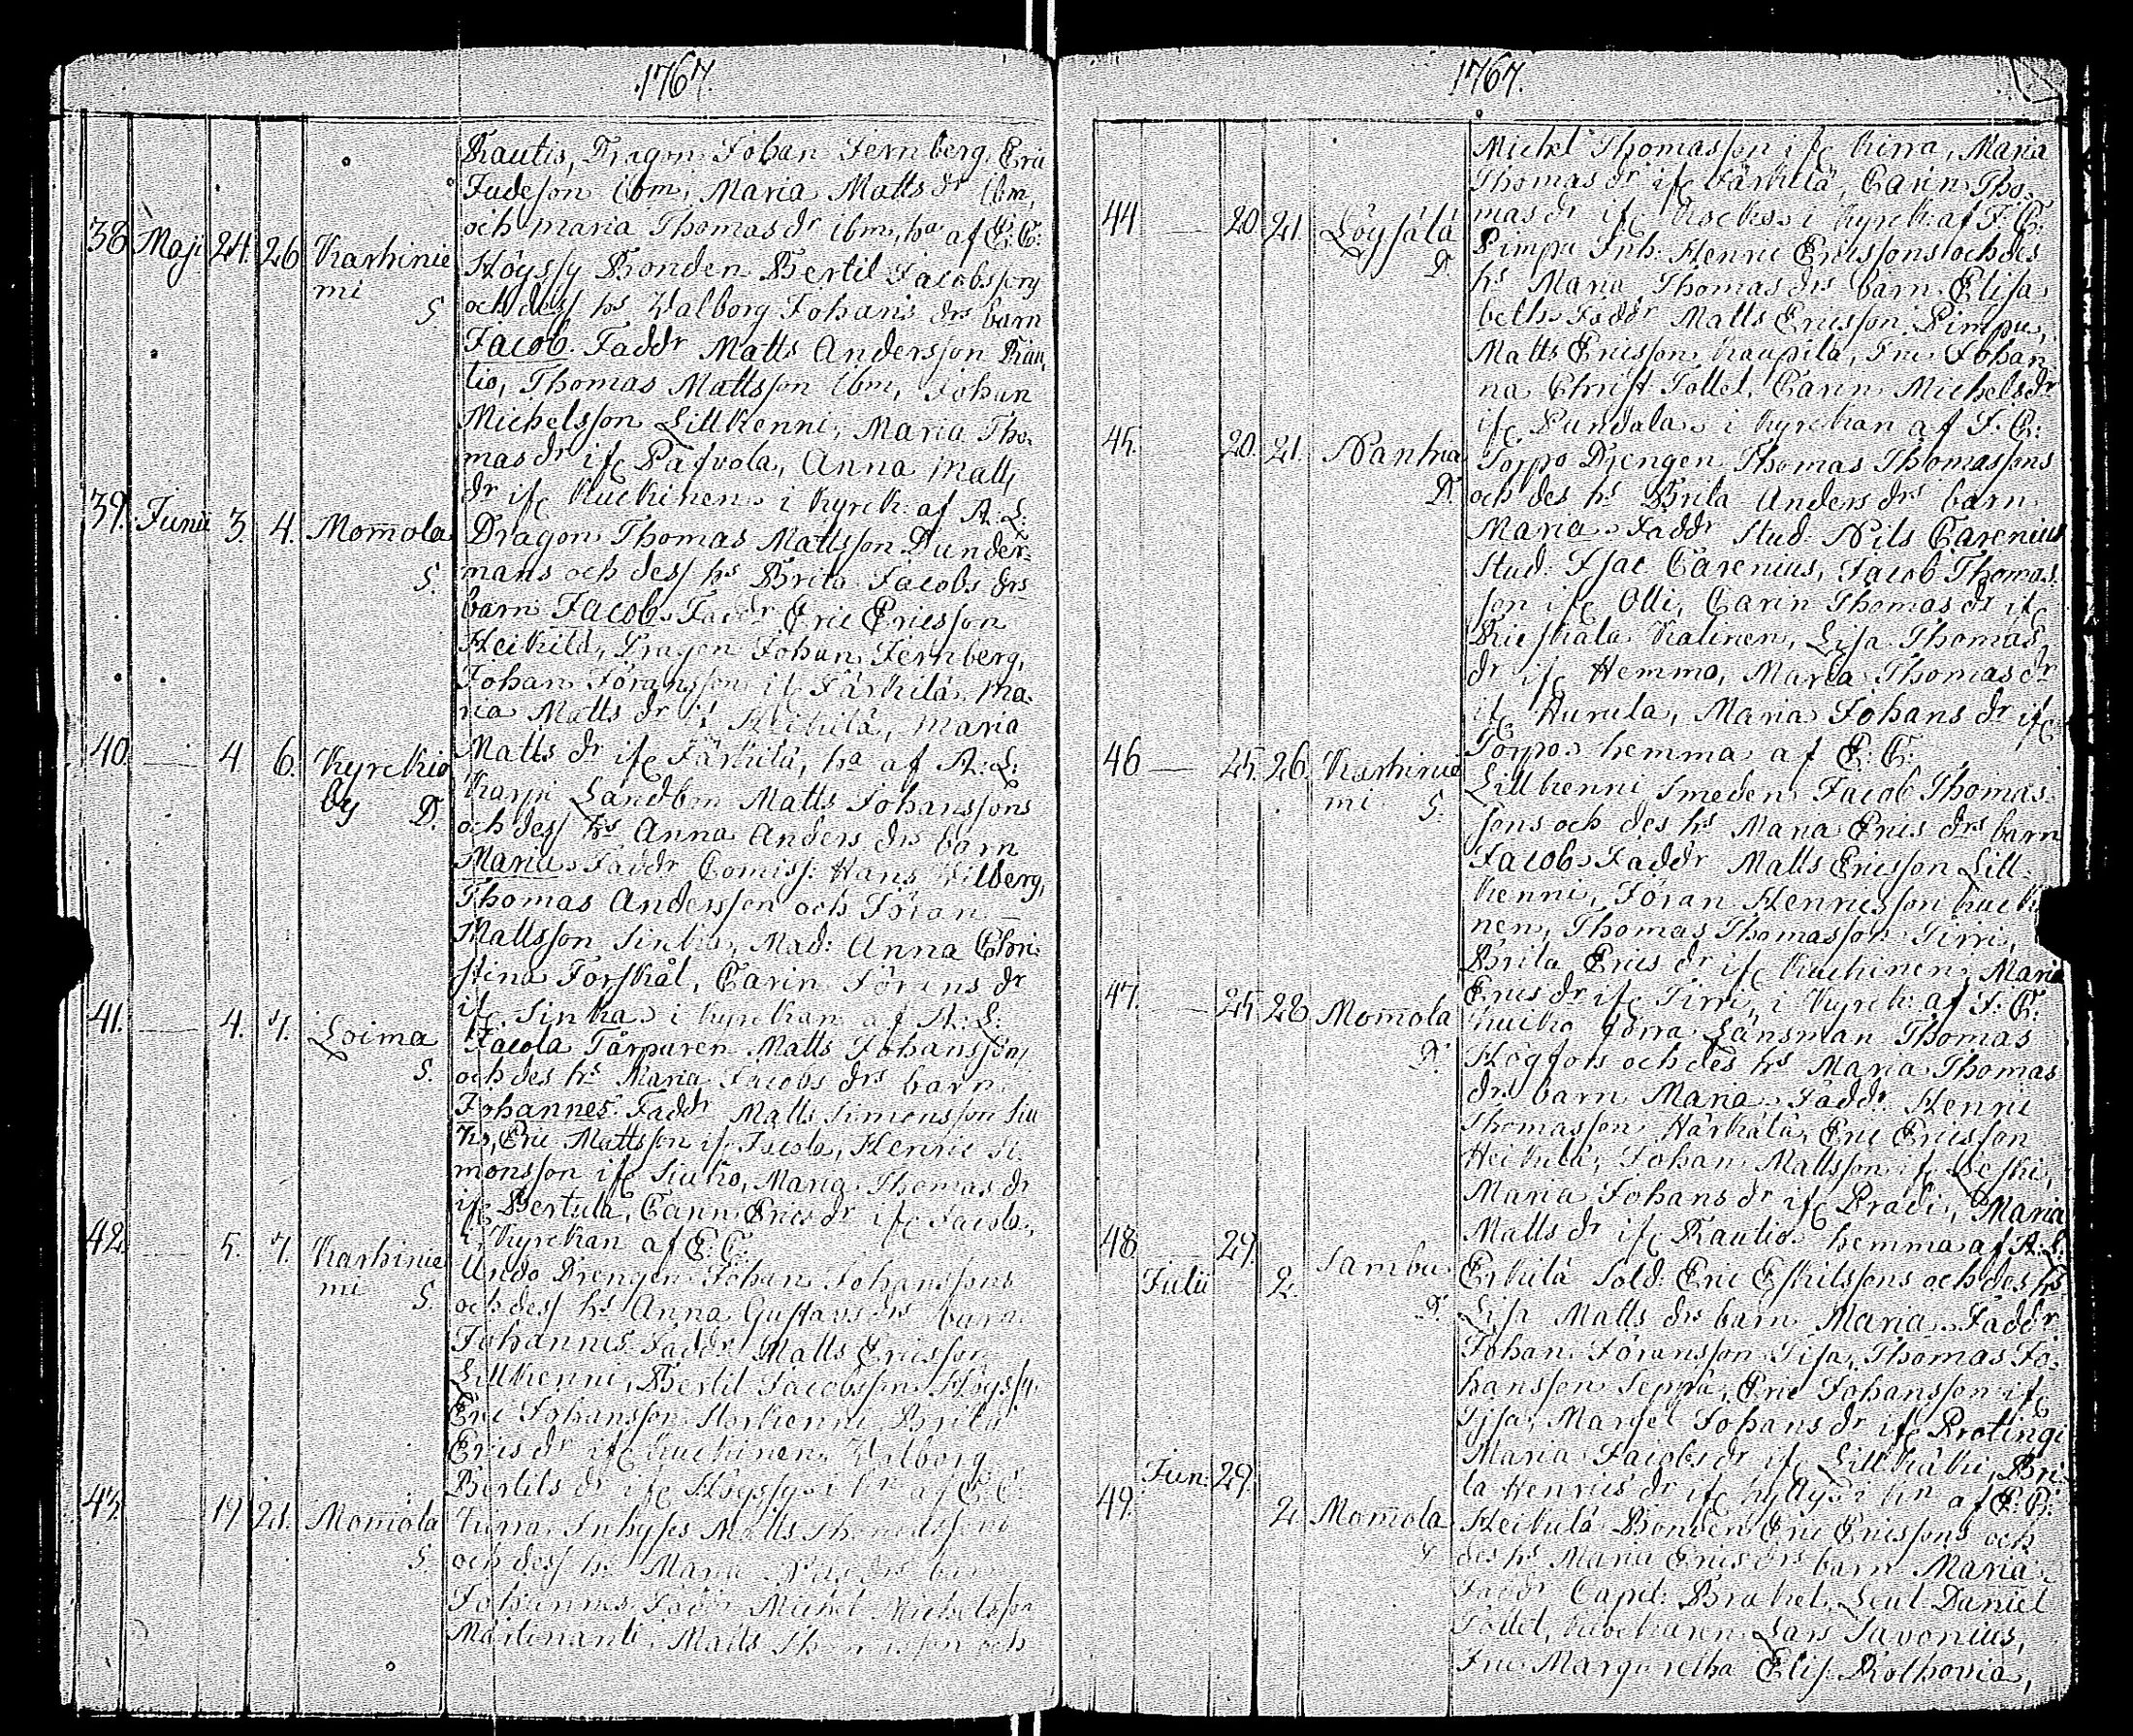 1767.
Rautio, Dragon Johan Jernberg, Eric
Judesson ibm, Maria Matts dr ibm,
och Maria Thomas dr ibm, ha af E: C:
38 Maji 24. 26 Karhinie
mi
S.
Höyssy Bonden Bertil Jacobssons
och dess hs Walborg Johans drs barn
Jacob. Faddr Matts Andersson Rau,
tio, Thomas Mattsson ibm, Johan
Michelsson Lillkenni, Maria Tho,
mas dr ifr Pafvola, Anna Matts
dr ifr Kuckinen i Kyrck: af A: L:
39. Junii 3. 4. Momola
S.
Dragon Thomas Mattsson Dunder-
mans och dess hs Brita Jacobs drs
barn Jacob. Faddr Eric Ericsson
Heikilä, Dragon Johan Jernberg,
Johan Jöransson ifr Färkilä, Ma-
ria Matts dr ifr Heikilä, Maria
Matts dr ifr Färkilä, ha af A: L:
40. — 4. 6. Kyrckio
by D.
Karpi Landbon Matts Johanssons
och dess hs Anna Anders drs barn
Maria. Faddr Comiss: Hans Wilberg,
Thomas Andersson och Jöran
Mattsson Sinka, Mad: Anna Chri-
stina Forskål, Carin Jörens dr
ifr Sinka i Kyrckan af A: L:
41. — 4. 7. Loima
S.
Jacola Tårparen Matts Johansson,
och des hs Maria Jacobs drs barn
Johannes. Faddr Matts Simonsson Siu
ko, Eric Mattsson ifr Jacola, Henric Si
monsson ifr Siuko, Maria Thomas dr
ifr Bertula, Carin Erics dr ifr Jacola,
i Kyrckan af E: C:
42. — 5. 7. Karhinie
mi S.
Undo Drengen Johan Johanssons
och dess hs Anna Gustavs drs barn
Johannes. Faddr Matts Ericsson
Lillkenni, Bertil Jacobsson Höyssy,
Eric Johansson Storkenni, Brita
Erics dr ifr Kuckinen, Walborg
Bertils dr ifr Höyssy i kn af E: C:
43. — 19 21. Momola
S.
Kurra Inhyses Matts Thomassons
och dess hs Maria Nils drs barn
Johannes. Faddr Michel Michelsson
Martinanti, Matts Thomasson och
1767.
Michel Thomasson ifr Kirra, Maria
Thomas dr ifr Färkilä, Carin Tho-
mas dr ifr Kockos i Kyrck: af J: C:
44 — 20. 21. Löysälä
D.
Pimpu Inh: Henric Ericssons och des
hs Maria Thomas drs barn Elisa
beth. Faddr Matts Ericsson Pimpu,
Matts Ericsson Kaupila, Fru Johan
na Christ: Tollet, Carin Michels dr
ifr Pundala i Kyrckan af J: C:
45. — 20. 21. Nanhia
D.
Torpo Drengen Thomas Thomassons
och des hs Brita Anders drs barn
Maria. Faddr Stud: Nils Carenius
Stud: Isac Carenius, Jacob Thomas
son ifr Olli, Carin Thomas dr ifr
Rieskala Kalinen, Lisa Thomas
dr ifr Hemmo, Maria Thomas dr
ifr Hurula, Maria Johans dr ifr
Torpo hemma af E: C:
46 — 25. 26. Karhinie
mi S.
Lillkenni Smeden Jacob Thomas-
sons och des hs Maria Erics drs barn
Jacob. Faddr Matts Ericsson Lill-
kenni, Jöran Henricsson Kucki
nen, Thomas Thomasson Tirri,
Brita Erics dr ifr Kuckinen, Maria
Erics dr ifr Tirri, i Kyrck: af J: C:
47. — 25 28 Momola
D.
Kuiko förra Länsman Thomas
Högfors och des hs Maria Thomas
drs barn Maria. Faddr Henric
Thomasson Härkälä, Eric Ericsson
Heikilä, Johan Mattsson ifr Seski,
Maria Johans dr ifr Prådi, Maria
Matts dr ifr Rautio hemma af A: L:
48 — 29.
Julii 2. Sambu
D.
Erkilä Sold: Eric Eskilssons och des hs
Lisa Matts drs barn Maria. Faddr
Johan Jöransson Sisa, Thomas Jo-
hansson Seppä, Eric Johansson ifr
Sisa, Margel Johans dr ifr Protingi
Maria Jacobs dr ifr Lillkåki, Bri-
ta Henrics dr ifr hyllys i kn af E: C:
49. Jun: 29.
2. Momola
D.
Heikilä Bonden Eric Ericssons och
des hs Maria Erics drs barn Maria.
Faddr Capit: Brakel, Leut Daniel
Tollet, Lars Savonius,
Fru Margaretha Elis: Rothovia,